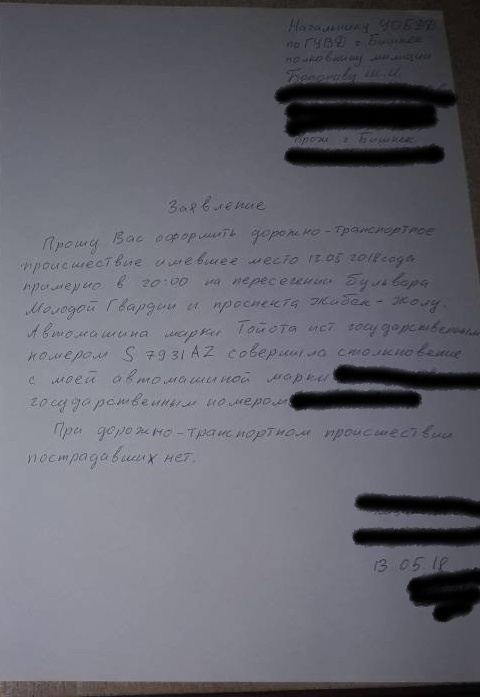 Начальнику УОБДД
по ГУВД г. Бишкек
полковнику милиции
Ш.И.
прож г Бишкек
Заявление
Прошу Вас оформить дорожно-транспортное
происшествие имевшее место 13.05.2018 года
примерно в 20:00 на пересечении Бульвара
Молодой Гвардии и проспекта Жибек-Жолу.
Автомашина марки Тойота ист государственным
номером S 7931 AZ совершила столкновение
с моей автомашиной марки
государственным номером
При дорожно-транспортном происшествии
пострадавших нет.
13 05.18